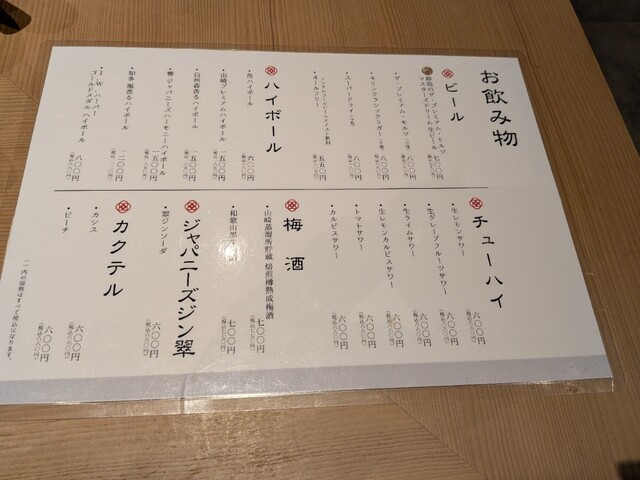 お飲み物
ビール
ザ・プレミアム・モルツ
マスターズドリーム 生ビール
七〇〇円
ザ・プレミアム・モルツ
八〇〇円
キリンクラシックラガー
八〇〇円
スーパードライ
八〇〇円
ノンアルコールビールテイスト飲料
オールフリー
五五〇円
ハイボール
・角ハイボール
六〇〇円
・山崎プレミアムハイボール
一五〇〇円
・白州森香るハイボール
一五〇〇円
・響 ジャパニーズハーモニーハイボール
一五〇〇円
・知多 風香るハイボール
一二〇〇円
・I・W・ハーパー
ゴールドメダル ハイボール
八〇〇円
チューハイ
・生レモンサワー
六〇〇円
・生グレープフルーツサワー
六〇〇円
・生ライムサワー
六〇〇円
・生レモンカルピスサワー
六〇〇円
・トマトサワー
六〇〇円
・カルピスサワー
六〇〇円
梅酒
・山崎蒸溜所貯蔵 焙煎樽熟成梅酒
七〇〇円
・和歌山黒
七〇〇円
ジャパニーズジン翠
・翠ジンソーダ
六〇〇円
カクテル
・カシス
六〇〇円
・ピーチ
六〇〇円
内の価格はすべて税込になります。